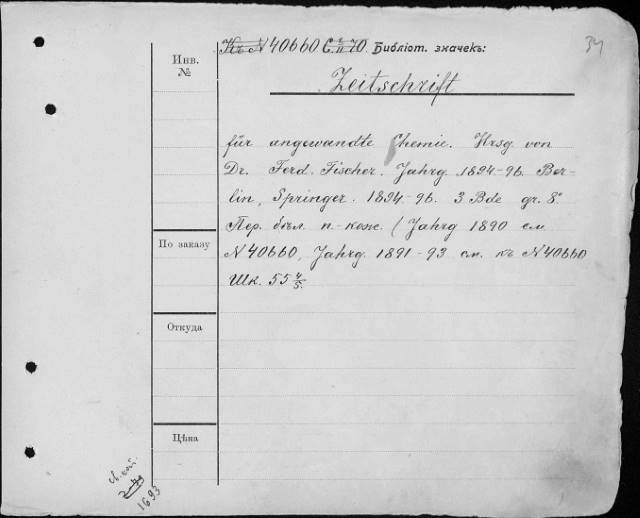 Къ N 40660 Библіот. значекъ:
34
Инв.
№
Zeitschrift
für angewandte Chemie. Hrsg von
Dr. Ferd. Fischer. Jahrg. 1894-96. Ber-
lin, Springer. 1894-96. 3 Bde gr. 8°
Пер. бѣл. п.-кож. (Jahrg 1890 см
N 40660, Jahrg. 1891-93 см. къ N 40660
Шк. 55 4/5.
По заказу
Откуда
Цѣна
1693